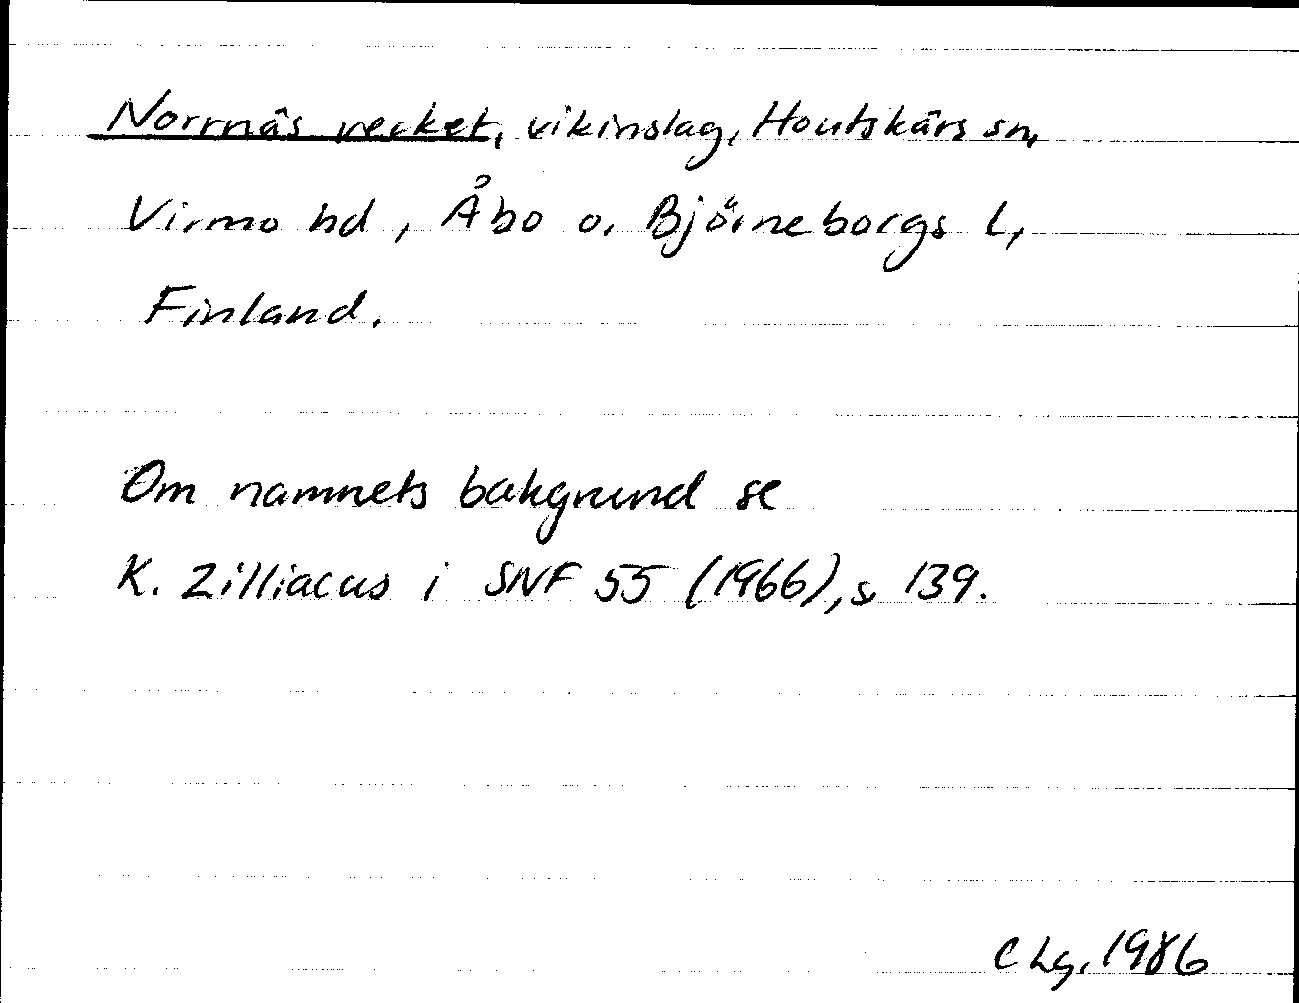 Norrnäs vecket, vikinslag, Houtskärs sn,
Virmo hd, Åbo o. Björneborgs l,
Finland.
Om namnets bakgrund se
K. Zilliacus i SNF 55 (1966), s 139.
C Lg. 1986